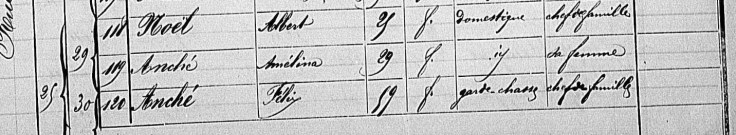 118 Noël Albert 25 f. domestique chef de famille
29 119 Anché Amélina 29 f. id sa femme
25 30 120 Anché Félix 59 f. garde-chasse chef de famille